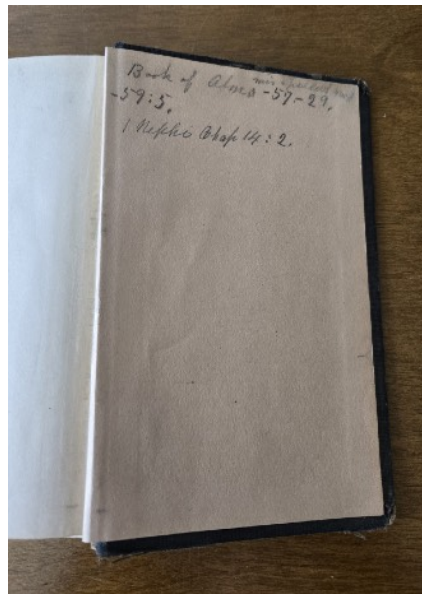 Book of Alma -57-29,
-59:5.
1 Nephi Chap 14:2.